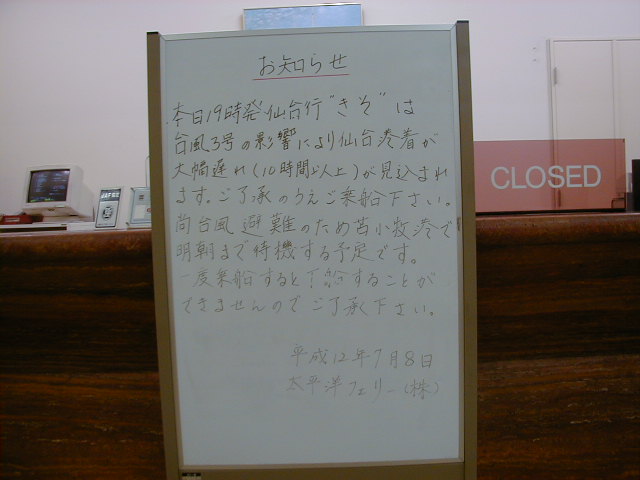 お知らせ
本日19時発仙台行"きそ"は
台風3号の影響により仙台港着が
大幅遅れ(10時間以上)が見込まれ
ます。ご了承のうえご乗船下さい。
尚台風避難のため苫小牧港で
明朝まで待機する予定です。
一度乗船すると下船することが
できませんのでご了承下さい。
平成12年7月8日
太平洋フェリー(株)
CLOSED